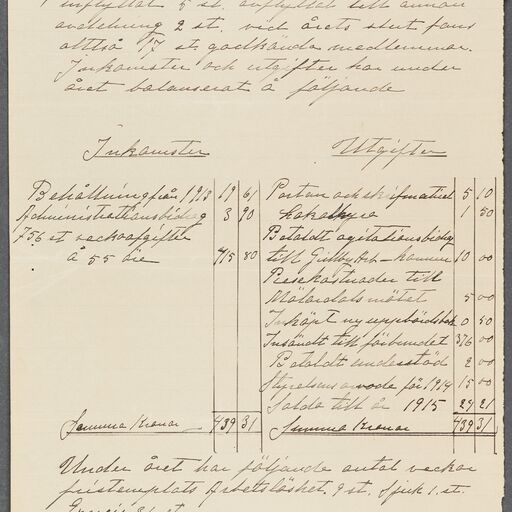 inflyttat 5 st. avflyttat till annan
avdelning 2 st. ved årets slut fans
alltså 17 st godkända medlemmar.
Inkomster och utgifter har under
året balanserat å följande
Inkomster
Behållning från 1913 19 61
Administrationsbidrag 3 90
756 st veckoafgifter
à 55 öre 415 80
Summa Kronor 439 31
Utgifter
Porton och skrifmatriel 5 10
Lokalhyra 1 50
Betaldt agitationsbidrag
till 10 00
Resekostnader till
Mälardals mötet 5 00
Inköpt ny uppbördsbok 0 50
Insändt till förbundet 376 00
Betaldt understöd 2 00
Styrelsens arvode för 1914 15 00
Saldo till år 1915 24 21
Summa Kronor 439 31
Under året har följande antal veckor
fristemplats Arbetslöshet 9 st. Sjuk 1 st.